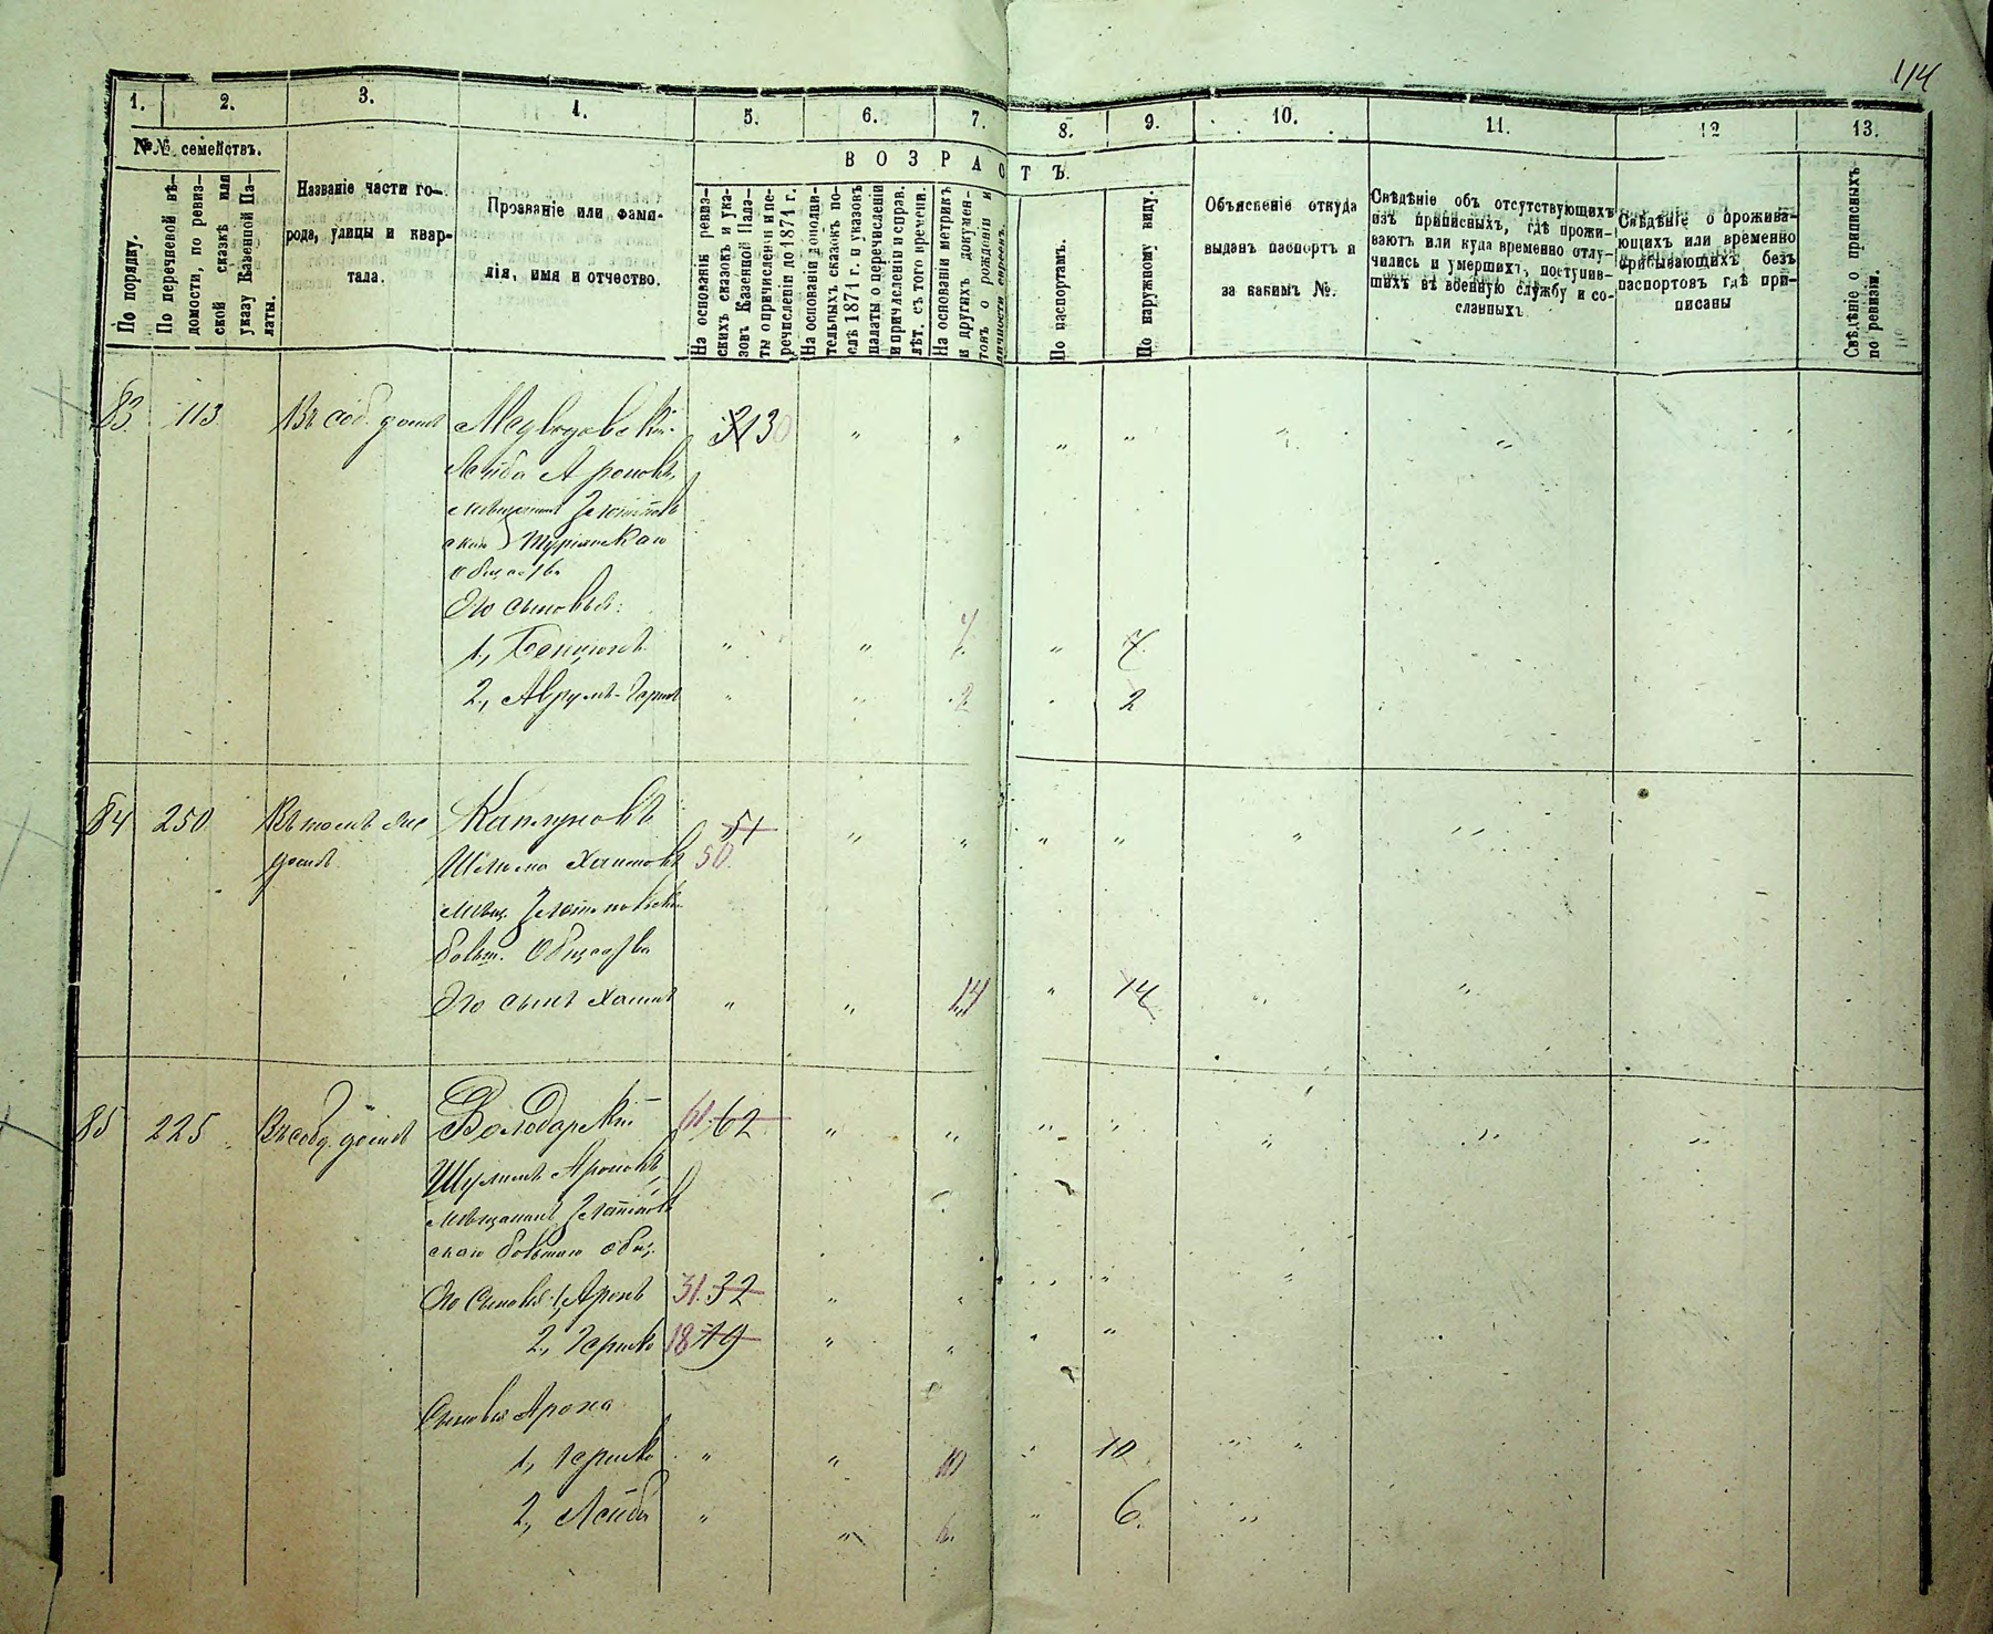 114
1. 2. 3. 4. 5. 6. 7. 8. 9. 10. 11. 12 13.
№№ семействъ.
По порядку.
По перечневой вѣ-
домости, по ревиз-
ской сказкѣ или
указу Казенной Па-
латы.
Названіе части го-
рода, улицы и квар-
тала.
Прозваніе или фами-
лія, имя и отчество.
ВОЗРАСТЪ.
На основаніи ревиз-
скихъ сказокъ и ука-
зовъ Казенной Пала-
ты о причисленіи и пе-
речисленія до 1871 г.
На основаніи дополни-
тельныхъ сказокъ по-
слѣ 1871 г. и указовъ
палаты о перечисленіи
и причисленіи и справ.
лѣт. съ того времени.
На основаніи метрикъ
и другихъ докумен-
товъ о рожденіи и
личности евреевъ.
По паспортамъ.
По наружному виду.
Объясненіе откуда
выданъ паспортъ и
за какимъ №.
Свѣдѣніе объ отсутствующихъ
изъ приписныхъ, гдѣ прожи-
ваютъ или куда временно отлу-
чились и умершихъ, поступив-
шихъ въ военную службу и со-
сланныхъ
Свѣдѣніе о прожива-
ющихъ или временно
прибывающихъ безъ
паспортовъ гдѣ при-
писаны
Свѣдѣніе о приписныхъ
по ревизіи.
83. 113. Въ соб. домѣ Медвѣдовскій 30 " " " " " "
Лейба Ароновъ,
мѣщанинъ Златопов
скаго
общества
Его сыновья:
1., Бенціонъ " " 7. " 7.
2., Аврумъ-Герш " " 2 " 2
84 250 Въ томъ же Каплуновъ 51 " " " " " "
домѣ Шлемо Хаимовъ 50.
мѣщ. Златоповск.
больш. Общества
Его сынъ Хаимъ " " 14 " 14 " "
85 225 Въ собд. домѣ Володарскій 61. 62 " " " " " " "
Шулимъ Ароновъ,
мѣщанинъ Златопов
скаго большаго общ.
Его сыновья: 1, Аронъ 31. 32 " " " " "
2., Гершко 18 19 " " " "
Сыновья Арона
1, Гершко " " 10 " 10 " "
2., Лейба " " 6. " 6. "